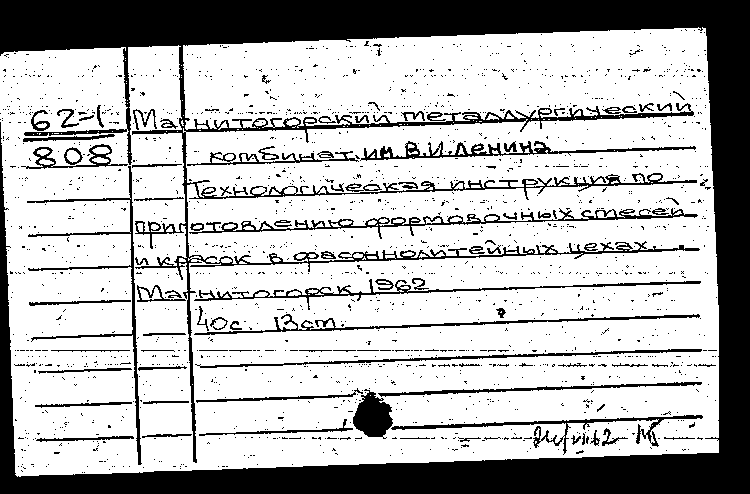 62-1 Магнитогорский металлургический
808 комбинат им. В.И. Ленина
Технологическая инструкция по
приготовлению формовочных смесей
и красок в фасоннолитейных цехах.
Магнитогорск, 1962.
40с. 13см.